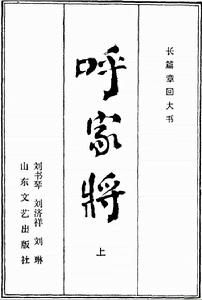 长篇章回大书
呼家將
上
刘书琴 刘济祥 刘琳
山东文艺出版社